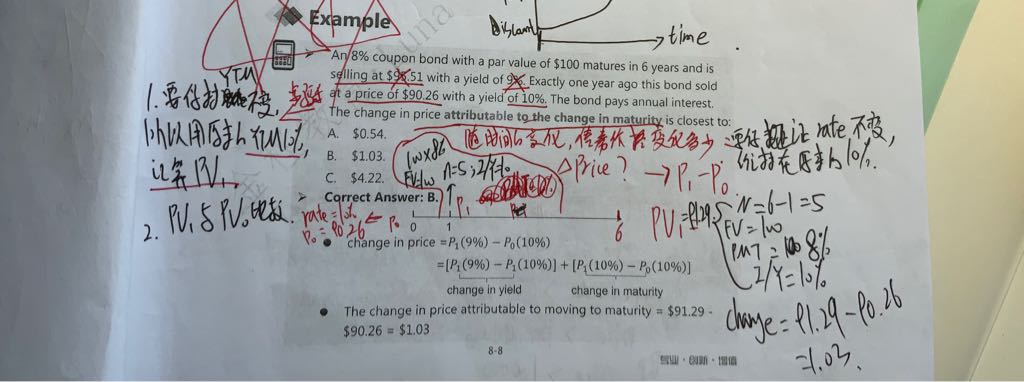 Example
Dis/amt
time
An 8% coupon bond with a par value of $100 matures in 6 years and is
selling at $95.51 with a yield of 9%. Exactly one year ago this bond sold
at a price of $90.26 with a yield of 10%. The bond pays annual interest.
The change in price attributable to the change in maturity is closest to:
A. $0.54.
B. $1.03.
C. $4.22.
Correct Answer: B.
0 1 6
change in price =P₁(9%) − P₀(10%)
=[P₁(9%) − P₁(10%)] + [P₁(10%) − P₀(10%)]
change in yield change in maturity
The change in price attributable to moving to maturity = $91.29 -
$90.26 = $1.03
8-8
专业·创新·增值
YTM
1. 要保持 不变,
所以用原来的YTM10%,
让算PV₁
2. PV₁与PV₀比较.
随时间的变化, 债券价格变化多少
△Price? → P₁-P₀
N=5; I/Y=10
rate=10%
P₀=90.26
P₀
P₁
要保证rate不变,
维持在原来的10%.
PV₁=91.29
N=6-1=5
FV=100
PMT= 8%
I/Y=10%
change=91.29-90.26
=1.03.